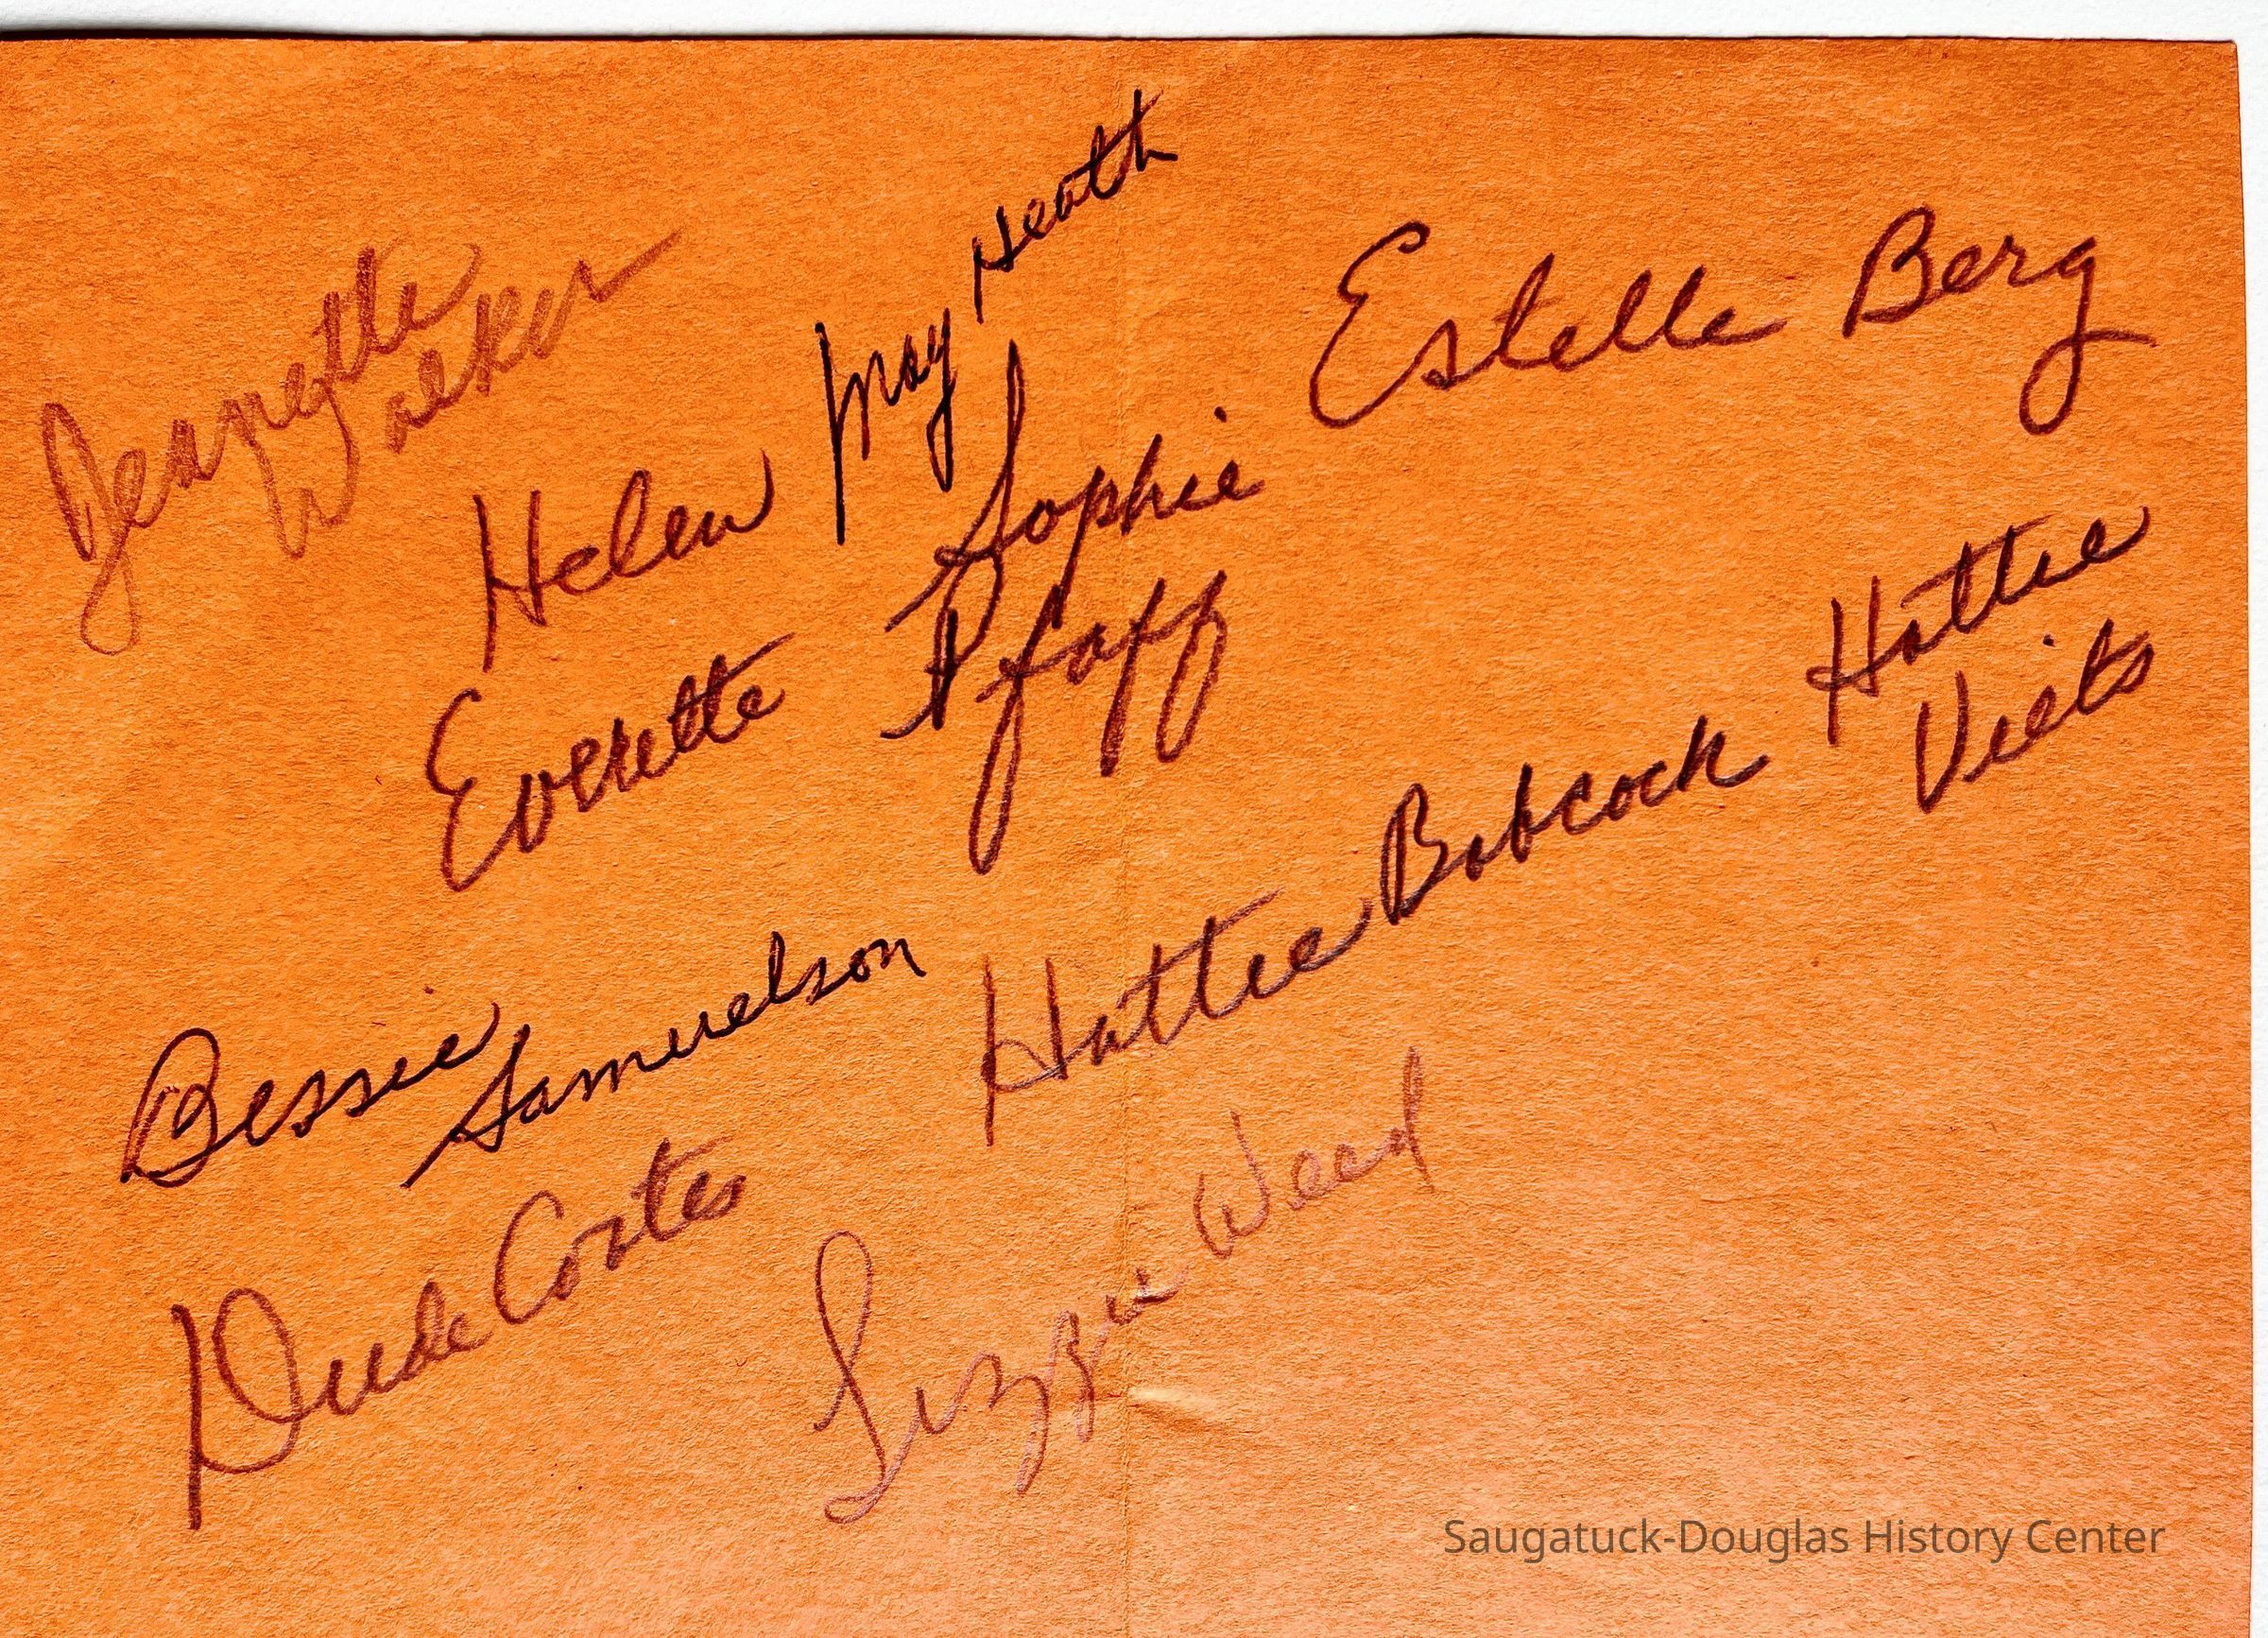 Jeannette
Walker
Helen
Everette
May Heath
Sophie
Pfaff
Estelle Berg
Bessie
Samuelson
Hattie Babcock
Hattie
Vieits
Dude Coates
Lizzie Weed
Saugatuck-Douglas History Center